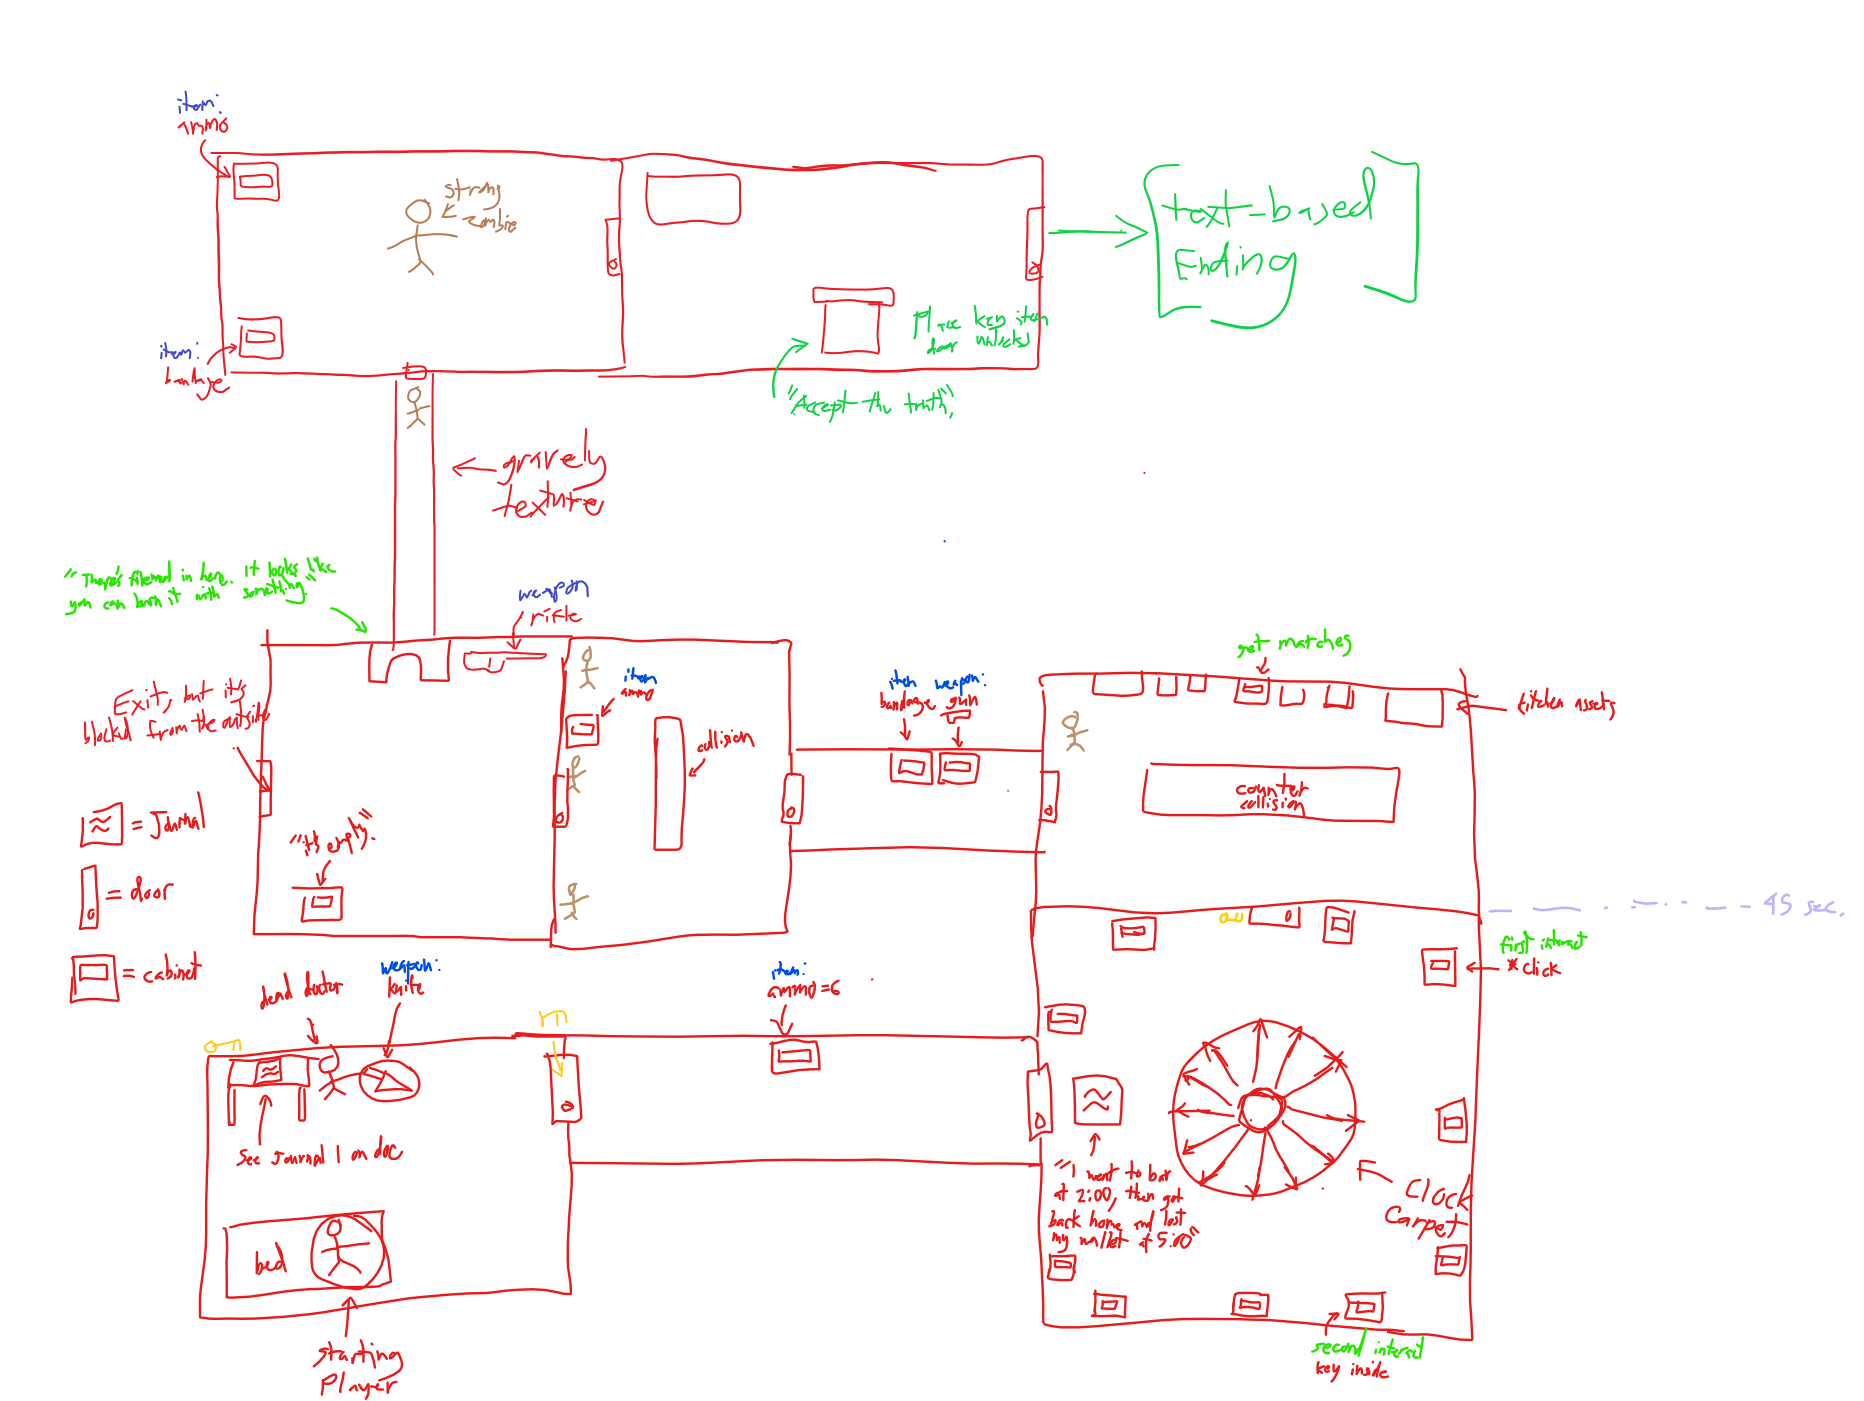 item:
ammo
strong
zombie
item:
bandage
text-based
Ending
Place key item
door unlocks
"Accept the truth"
gravely
texture
"There's firewood in here. It looks like
you can burn it with something."
weapon
rifle
Exit, but its
blocked from the outside
item
ammo
collision
"it's empty".
item weapon:
bandage gun
get matches
kitchen assets
counter
collision
= Journal
= door
= cabinet
45 sec.
first interact
*click
dead doctor
weapon:
knife
item:
ammo = 6
see Journal 1 on doc
bed
starting
Player
"I went to bar
at 2:00, then got
back home and lost
my wallet at 5:00"
Clock
Carpet
second interact
key inside